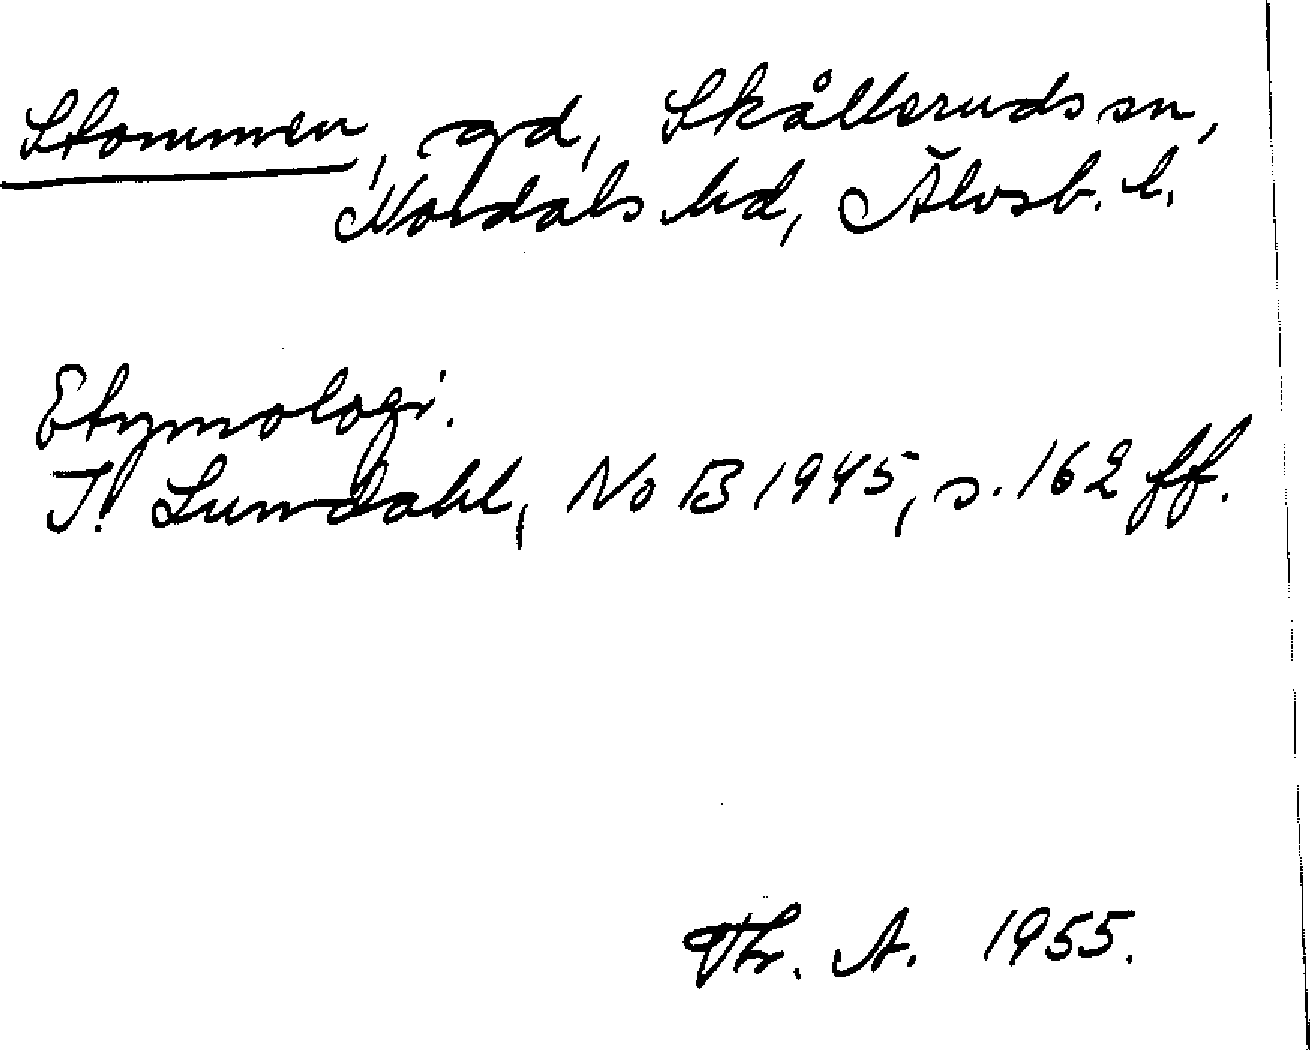 Stommen, gd, Skålleruds sn,
Nordals hd, Älvsb. l.
Etymologi.
I. Lundahl, NoB 1945, s. 162 ff.
Th. A. 1955.